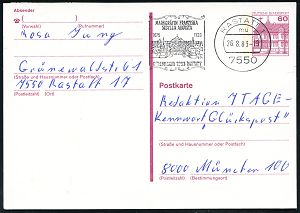 Absender
(Vorwahl) (Rufnummer)
Rosa Jung
Grünewaldstr. 61
(Straße und Hausnummer oder Postfach)
7550 Rastatt 17
(Postleitzahl) (Ort)
MARKGRÄFIN FRANZISKA
SIBYLLA AUGUSTA
1675 1733
RASTATT
mu
26.8.83-19
7550
60
Postkarte
Redaktion 7 TAGE -
Kennwort „Glückspost"
(Straße und Hausnummer oder Postfach)
8000 München 100
(Postleitzahl) (Bestimmungsort)